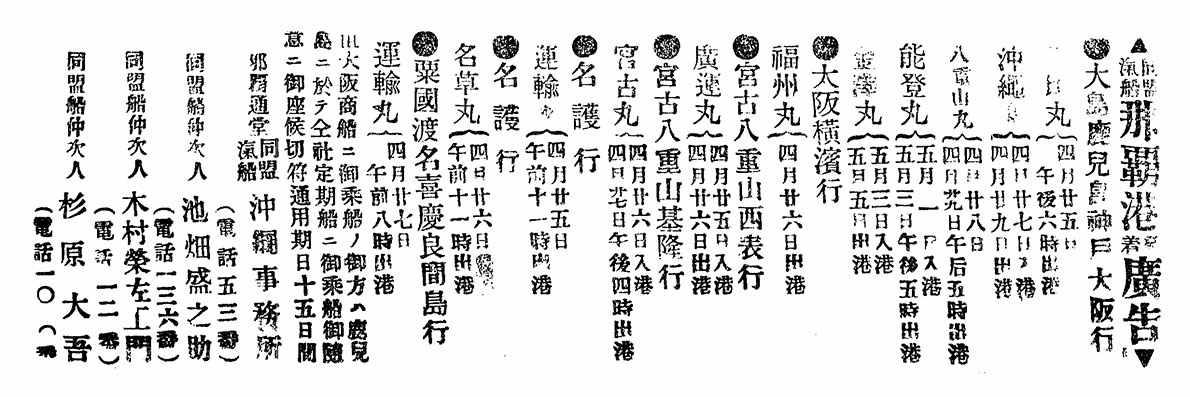 ▲同盟汽船那覇港發着廣告▼
●大島鹿兒島神戸大阪行
丸 四月廿五日 午後六時出港
沖繩丸 四月廿七日入港 四月廿九日出港
八重山丸 四月廿八日 四月廿九日午后五時出港
能登丸 五月一日入港 五月三日午後五時出港
丸 五月三日入港 五月五日出港
●大阪横濱行
福州丸 四月六日出港
●宮古八重山西表行
廣運丸 四月廿五日入港 四月廿六日出港
●宮古八重山基隆行
宮古丸 四月廿六日入港 四月廿七日午後四時出港
●名護行
運輸丸 四月廿五日 午前十一時出港
●名護行
名草丸 四月廿六日 午前十一時出港
●粟國渡名喜慶良間島行
運輸丸 四月廿七日 午前八時出港
大阪商船ニ御乘船ノ御方ハ鹿兒
島ニ於テ仝社定期船ニ御乘船御隨
意ニ御座候切符通用期日十五日間
那覇通堂 同盟汽船 沖繩事務所
(電話五三番)
同盟船仲次人 池畑盛之助
(電話一三六番)
同盟船仲次人 木村榮左工門
(電話一二番)
同盟船仲次人 杉原大吾
(電話一〇